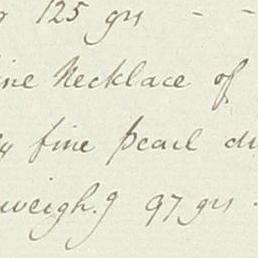 125 grs - -
Necklace of
fine pearl
weigh.g 97 grs -